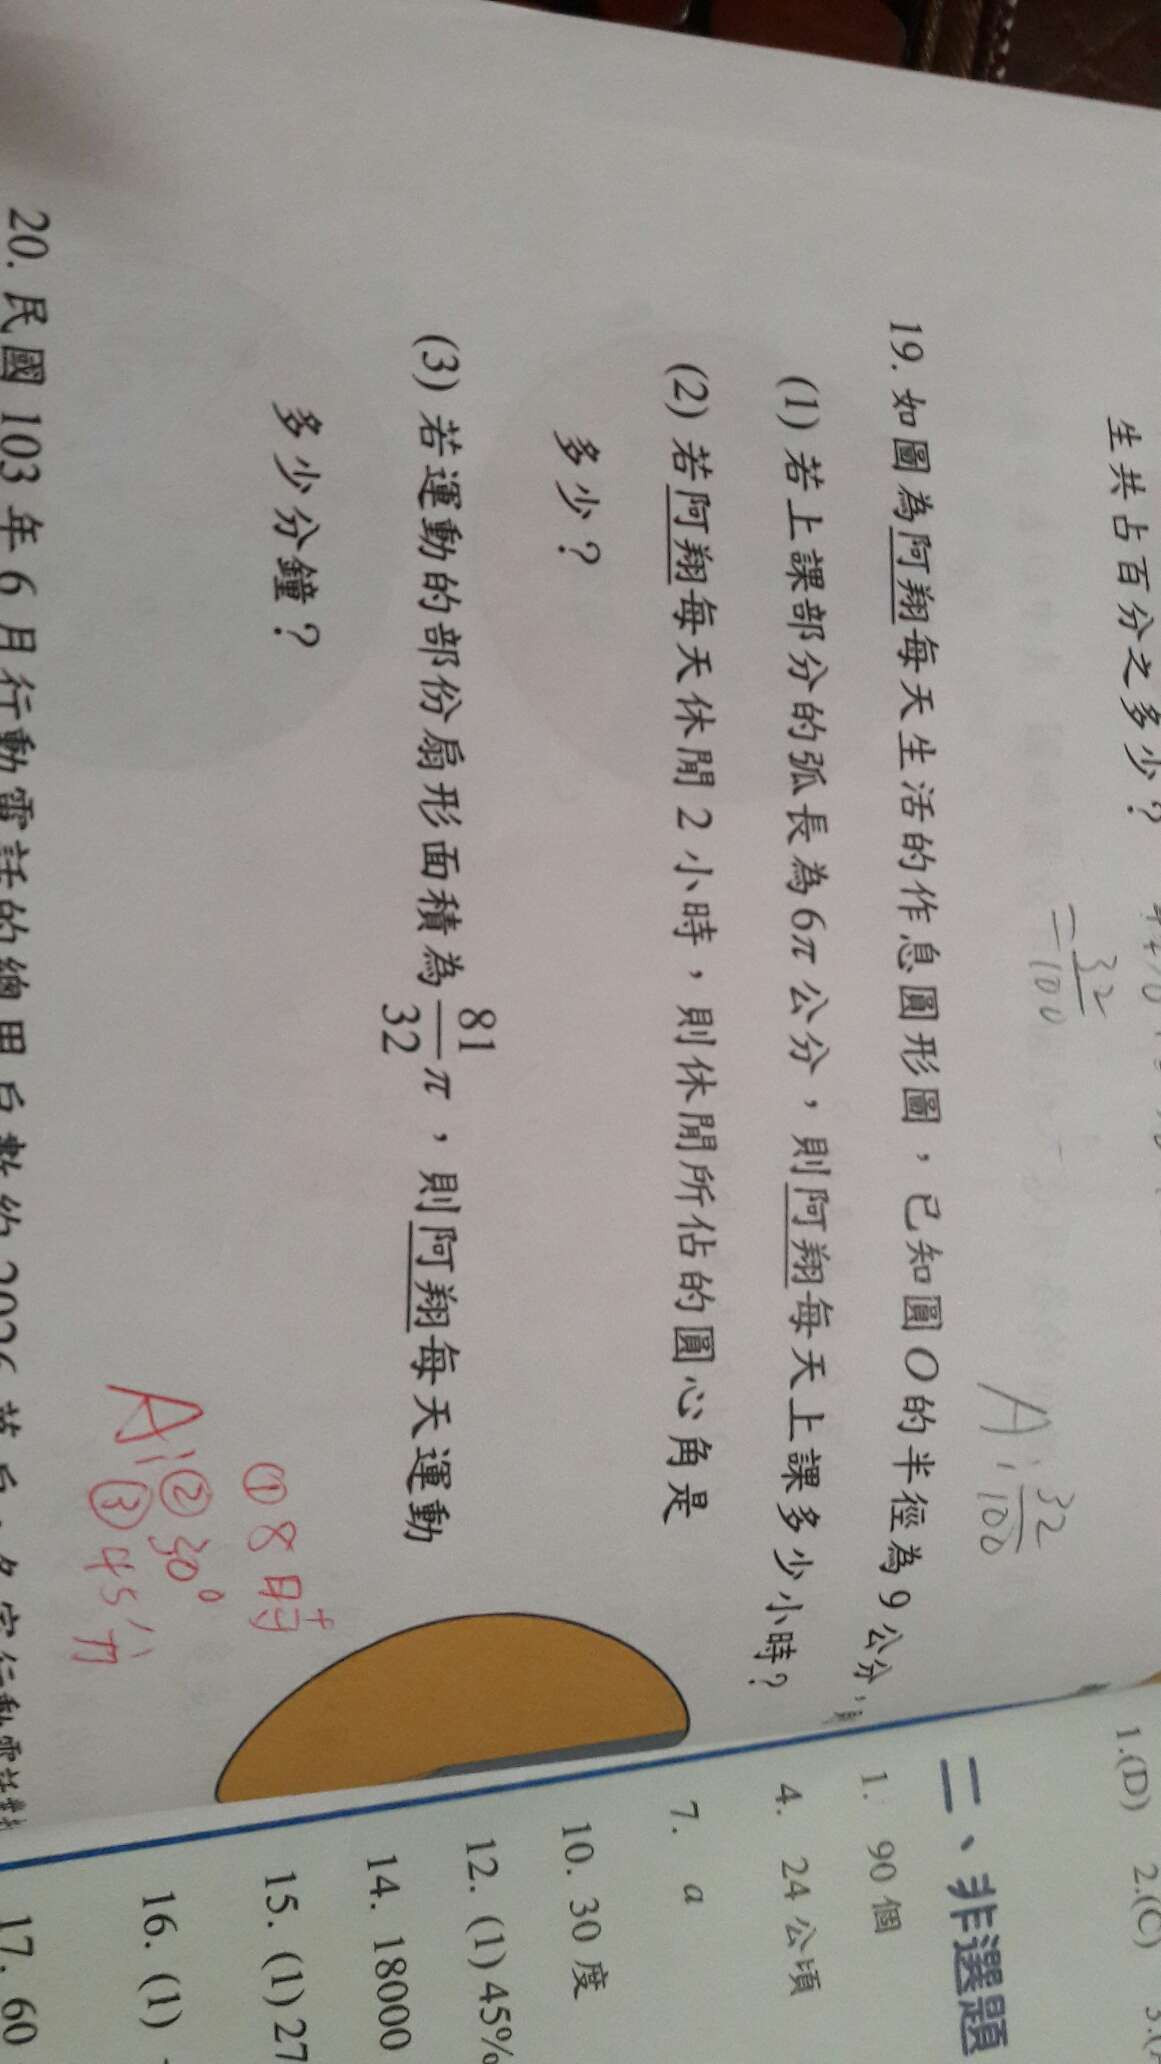 生共占百分之多少?
= 32/100
A: 32/100
19. 如圖為阿翔每天生活的作息圓形圖，已知圓O的半徑為9公分，則
(1) 若上課部分的弧長為6π公分，則阿翔每天上課多少小時?
(2) 若阿翔每天休閒2小時，則休閒所佔的圓心角是
多少?
(3) 若運動的部份扇形面積為81/32π，則阿翔每天運動
多少分鐘?
①8時
A:②30°
③45分
20. 民國103年6月行動電話的總用戶數約2926萬戶
1.(D) 2.(C)
二、非選題
1. 90個
4. 24公頃
7. a
10. 30度
12. (1) 45%
14. 18000
15. (1) 27
16. (1)
17. 60